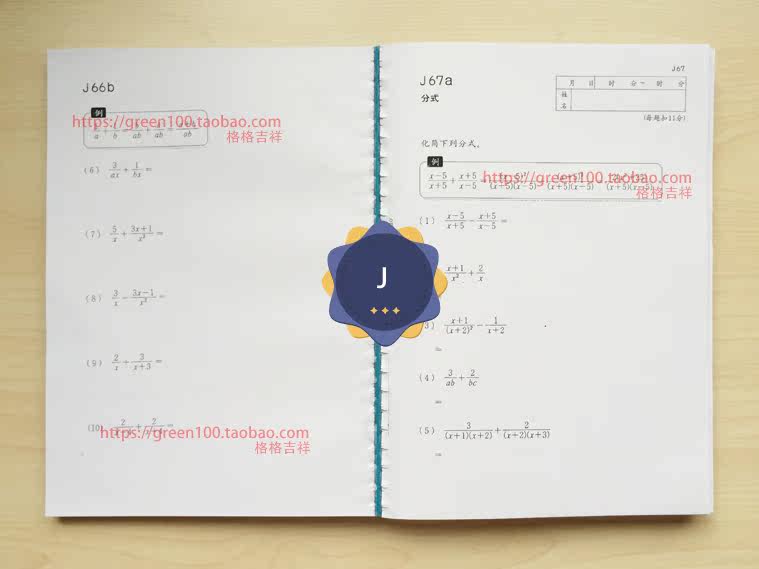 J66b
例
https://green100.taobao.com
格格吉祥
(6) 3/ax + 1/bx =
(7) 5/x + 3x+1/x² =
(8) 3/x - 3x-1/x² =
(9) 2/x + 3/x+3 =
(10)
https://green100.taobao.com
格格吉祥
J
J67
J67a
分式
月 日 时 分~ 时 分
姓名
(每题扣11分)
化简下列分式。
例
x-5/x+5 + x+5/x-5
https://green100.taobao.com
格格吉祥
(1) x-5/x+5 - x+5/x-5 =
x+1/x² + 2/x
3) x+1/(x+2)² - 1/x+2
=
(4) 3/ab + 2/bc
=
(5) 3/(x+1)(x+2) + 2/(x+2)(x+3)
=